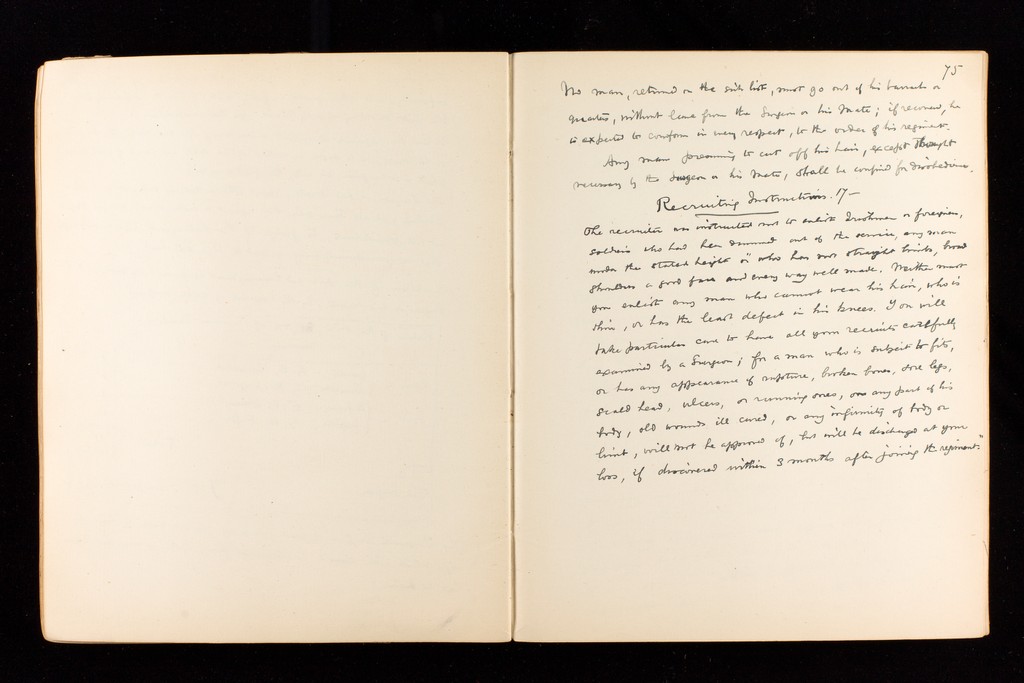 75
No man, returned on the sick list, must go out of his barrack or
quarters, without leave from the Surgeon or his Mate; if recovered, he
is expected to conform in every respect, to the orders of his regiment.
Any man presuming to cut off his hair, except thought
necessary by the Surgeon or his Mate, shall be confined for disobedience.
Recruiting Instructions. 17—
The recruiter is instructed not to enlist Irishmen or foreigners,
soldiers who had been drummed out of the service, any man
under the stated height "or who has not straight limbs, broad
shoulders a good face and every way well made. Neither must
you enlist any man who cannot wear his hair, who is
thin, or has the least defect in his knees. You will
take particular care to have all your recruits carefully
examined by a Surgeon; for a man who is subject to fits,
or has any appearance of rupture, broken bones, sore legs,
scald head, ulcers, or running sores, on any part of his
body, old wounds ill cured, or any infirmity of body or
limb, will not be approved of, but will be discharged at your
loss, if discovered within 3 months after joining the regiment."